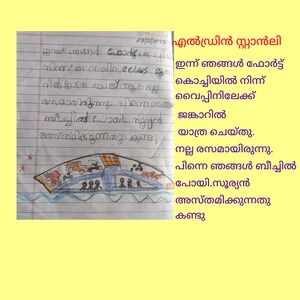 23/2/2022
ഇന്ന് ഞങ്ങൾ ഫോർട്ട് കൊച്ചി
നിന്ന്
രസമായിരുന്നു. പിന്നെ ഞങ്ങൾ
ബീച്ചിൽ പോയി. സൂര്യൻ
അസ്തമിക്കുന്നതു കണ്ടു.
എൽഡ്രിൻ സ്റ്റാൻലി
ഇന്ന് ഞങ്ങൾ ഫോർട്ട്
കൊച്ചിയിൽ നിന്ന്
വൈപ്പിനിലേക്ക്
ജങ്കാറിൽ
യാത്ര ചെയ്തു.
നല്ല രസമായിരുന്നു.
പിന്നെ ഞങ്ങൾ ബീച്ചിൽ
പോയി.സൂര്യൻ
അസ്തമിക്കുന്നതു
കണ്ടു